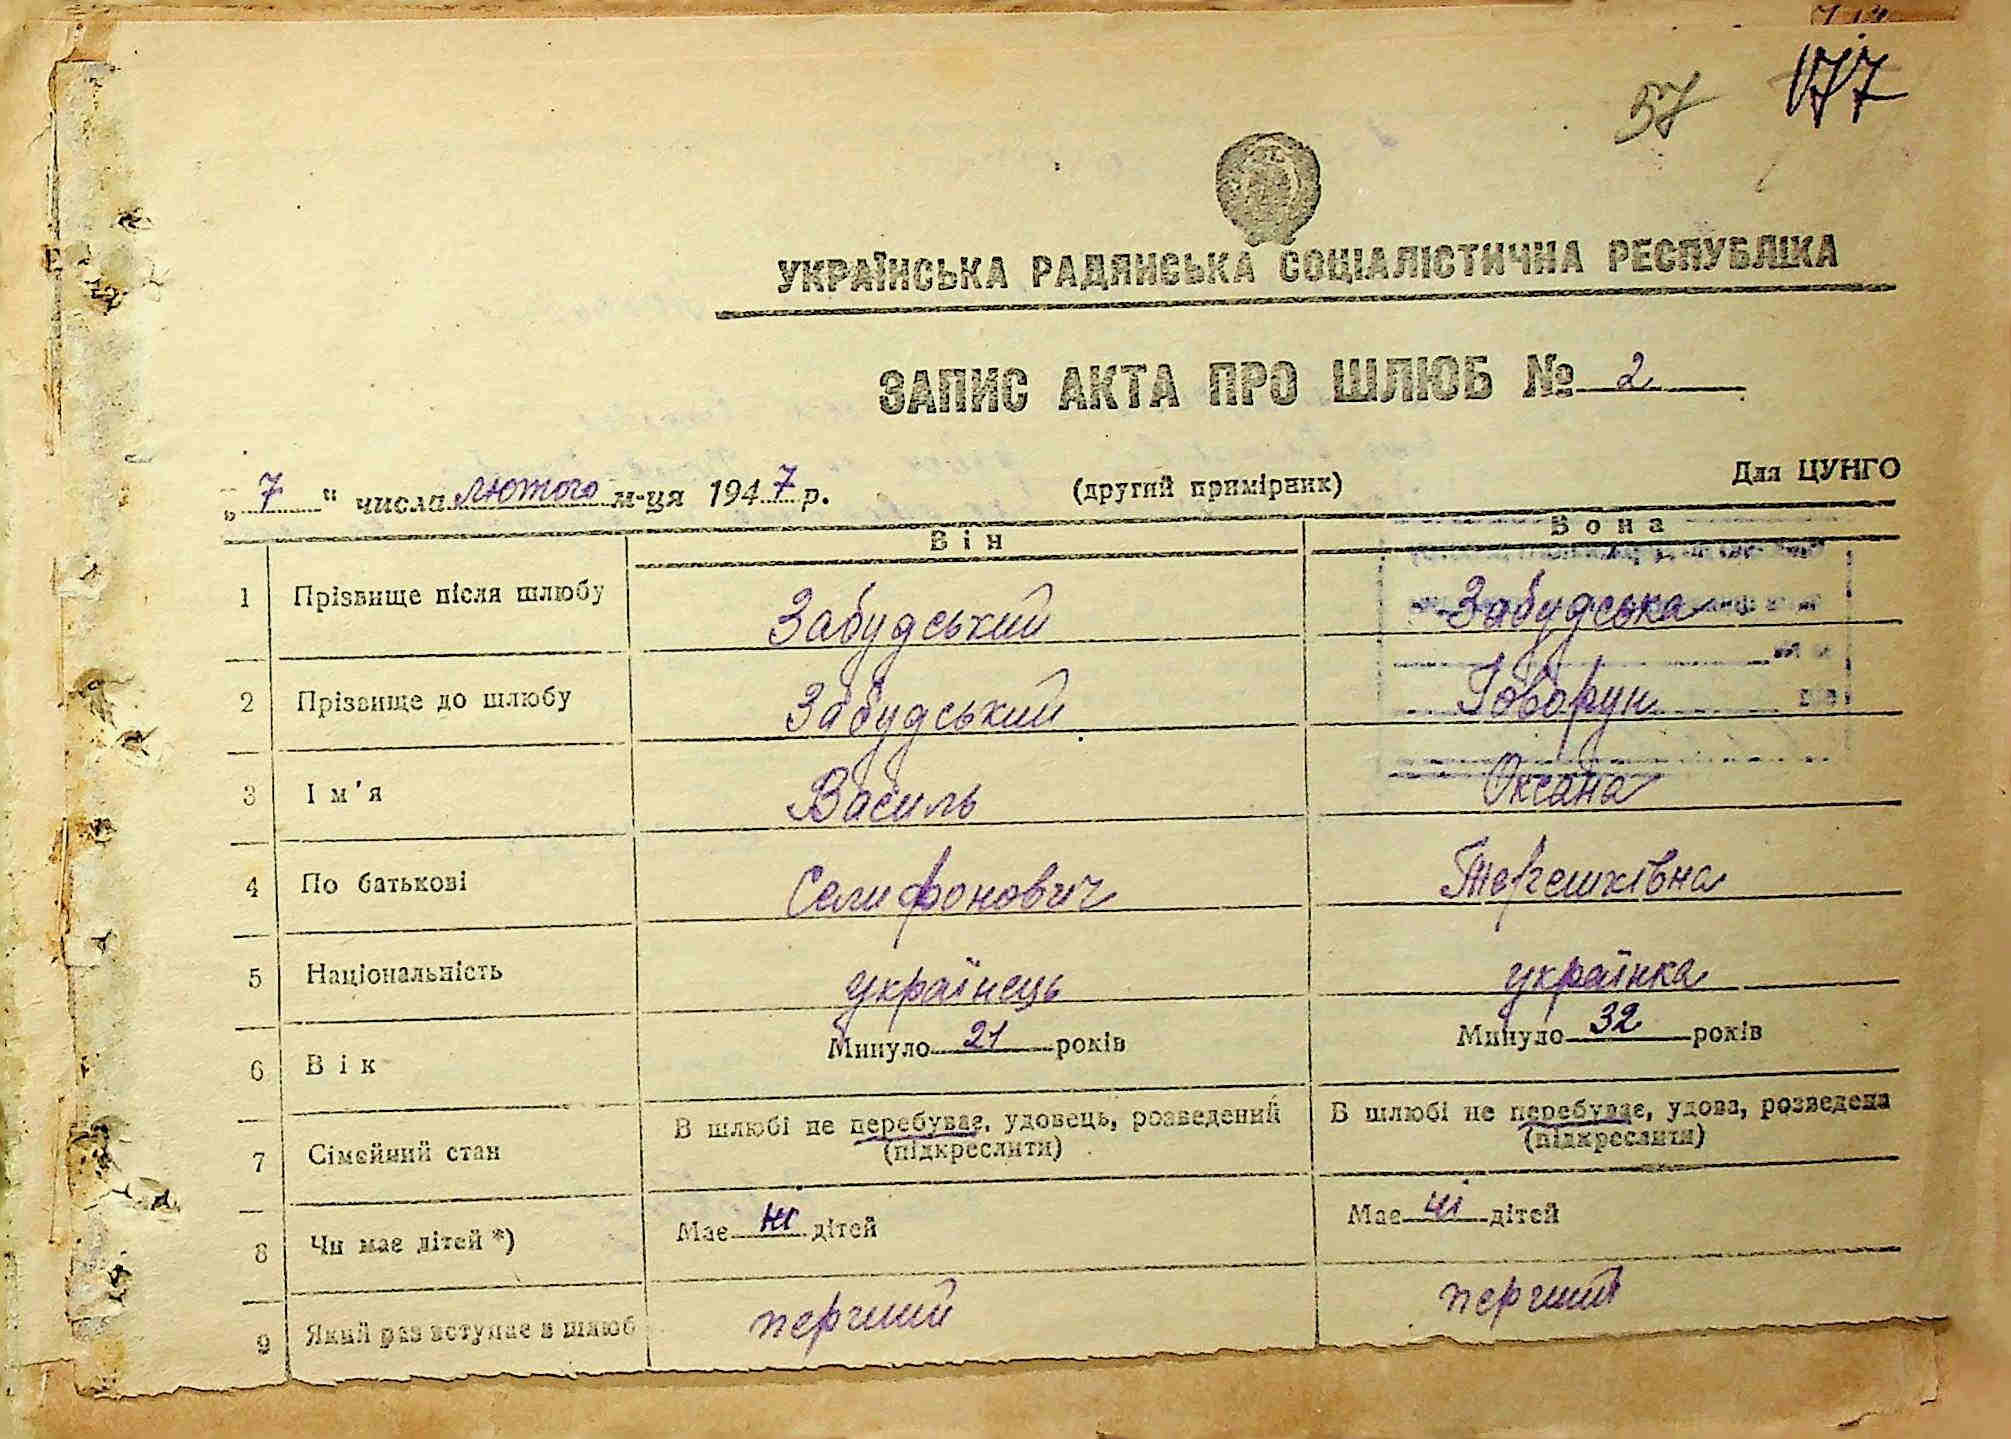 57 177
УКРАЇНСЬКА РАДЯНСЬКА СОЦІАЛІСТИЧНА РЕСПУБЛІКА
ЗАПИС АКТА ПРО ШЛЮБ № 2
„ 7 “ числа лютого м-ця 1947 р. (другий примірник) Для ЦУНГО
Він Вона
1 Прізвище після шлюбу Забудський Забудська
2 Прізвище до шлюбу Забудський Говорун
3 Ім'я Василь Оксана
4 По батькові Селифонович Терешківна
5 Національність українець українка
6 Вік Минуло 21 років Минуло 32 років
7 Сімейний стан В шлюбі не перебуває, удовець, розведений (підкреслити) В шлюбі не перебуває, удова, розведена (підкреслити)
8 Чи має дітей *) Має ні дітей Має ні дітей
9 Який раз вступає в шлюб перший перший